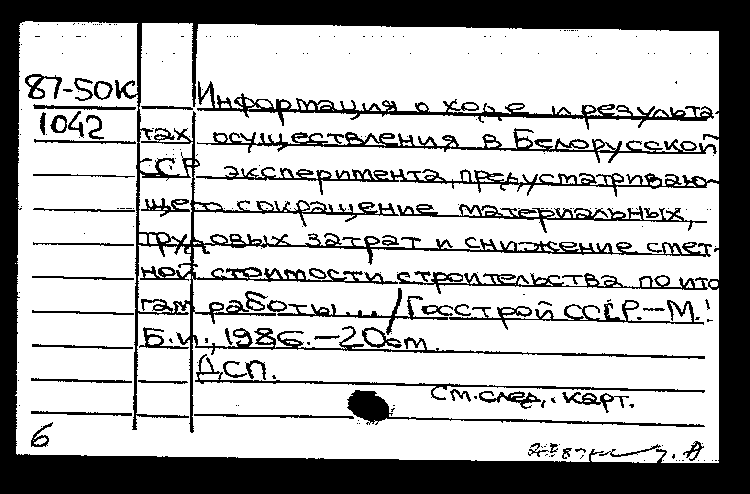 87-50К
1042
Информация о ходе и результа-
тах осуществления в Белорусской
ССР эксперимента, предусматриваю-
щего сокращение материальных,
трудовых затрат и снижение смет-
ной стоимости строительства по ито
гам работы... / Госстрой СССР.—М.:
Б.и., 1986.—20 от.
ДСП.
см. след. карт.
6